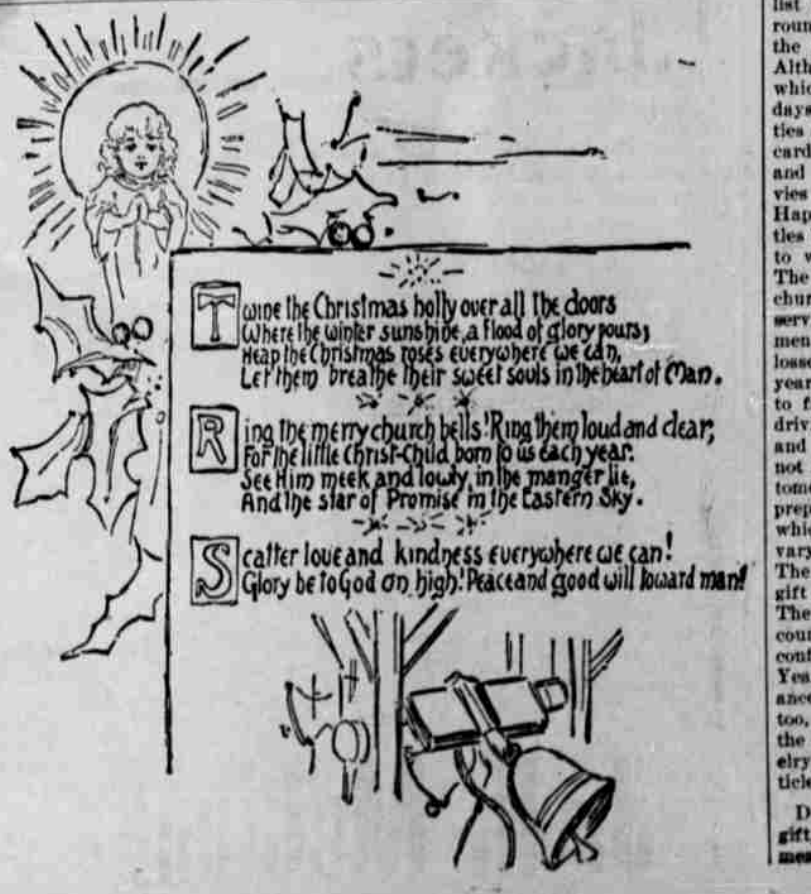 Twine the Christmas holly over all the doors
Where the winter sunshine, a flood of glory pours;
Heap the Christmas roses everywhere we can,
Let them breathe their sweet souls in the heart of Man.
Ring the merry church bells! Ring them loud and clear,
For the little Christ-Child born to us each year.
See Him meek and lowly, in the manger lie,
And the star of Promise in the Eastern Sky.
Scatter love and kindness everywhere we can!
Glory be to God on high! Peace and good will toward man!
list
roun
the
Alth
whic
days
ties
card
and
vies
Hap
ties
to w
The
chur
serv
men
losse
year
to f
driv
and
not
tome
prep
whic
vary
The
gift
The
cour
conf
Yea
ance
too,
the
elry
ticle
D
gift,
mea